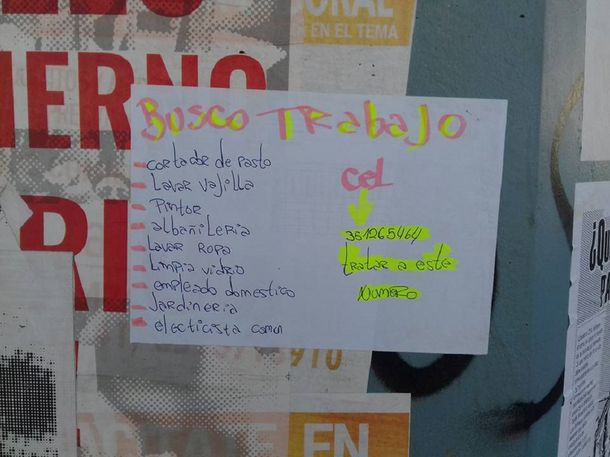 ORAL
EN EL TEMA
IERNO
RI
BUSCO TRabaJO
cortador de pasto
Lavar vajilla
Pintor
albañileria
Lavar Ropa
Limpia vidrio
empleado domestico
Jardineria
electicista comun
cel
351265464
tratar a este
Numero
910
EN
¿Qu